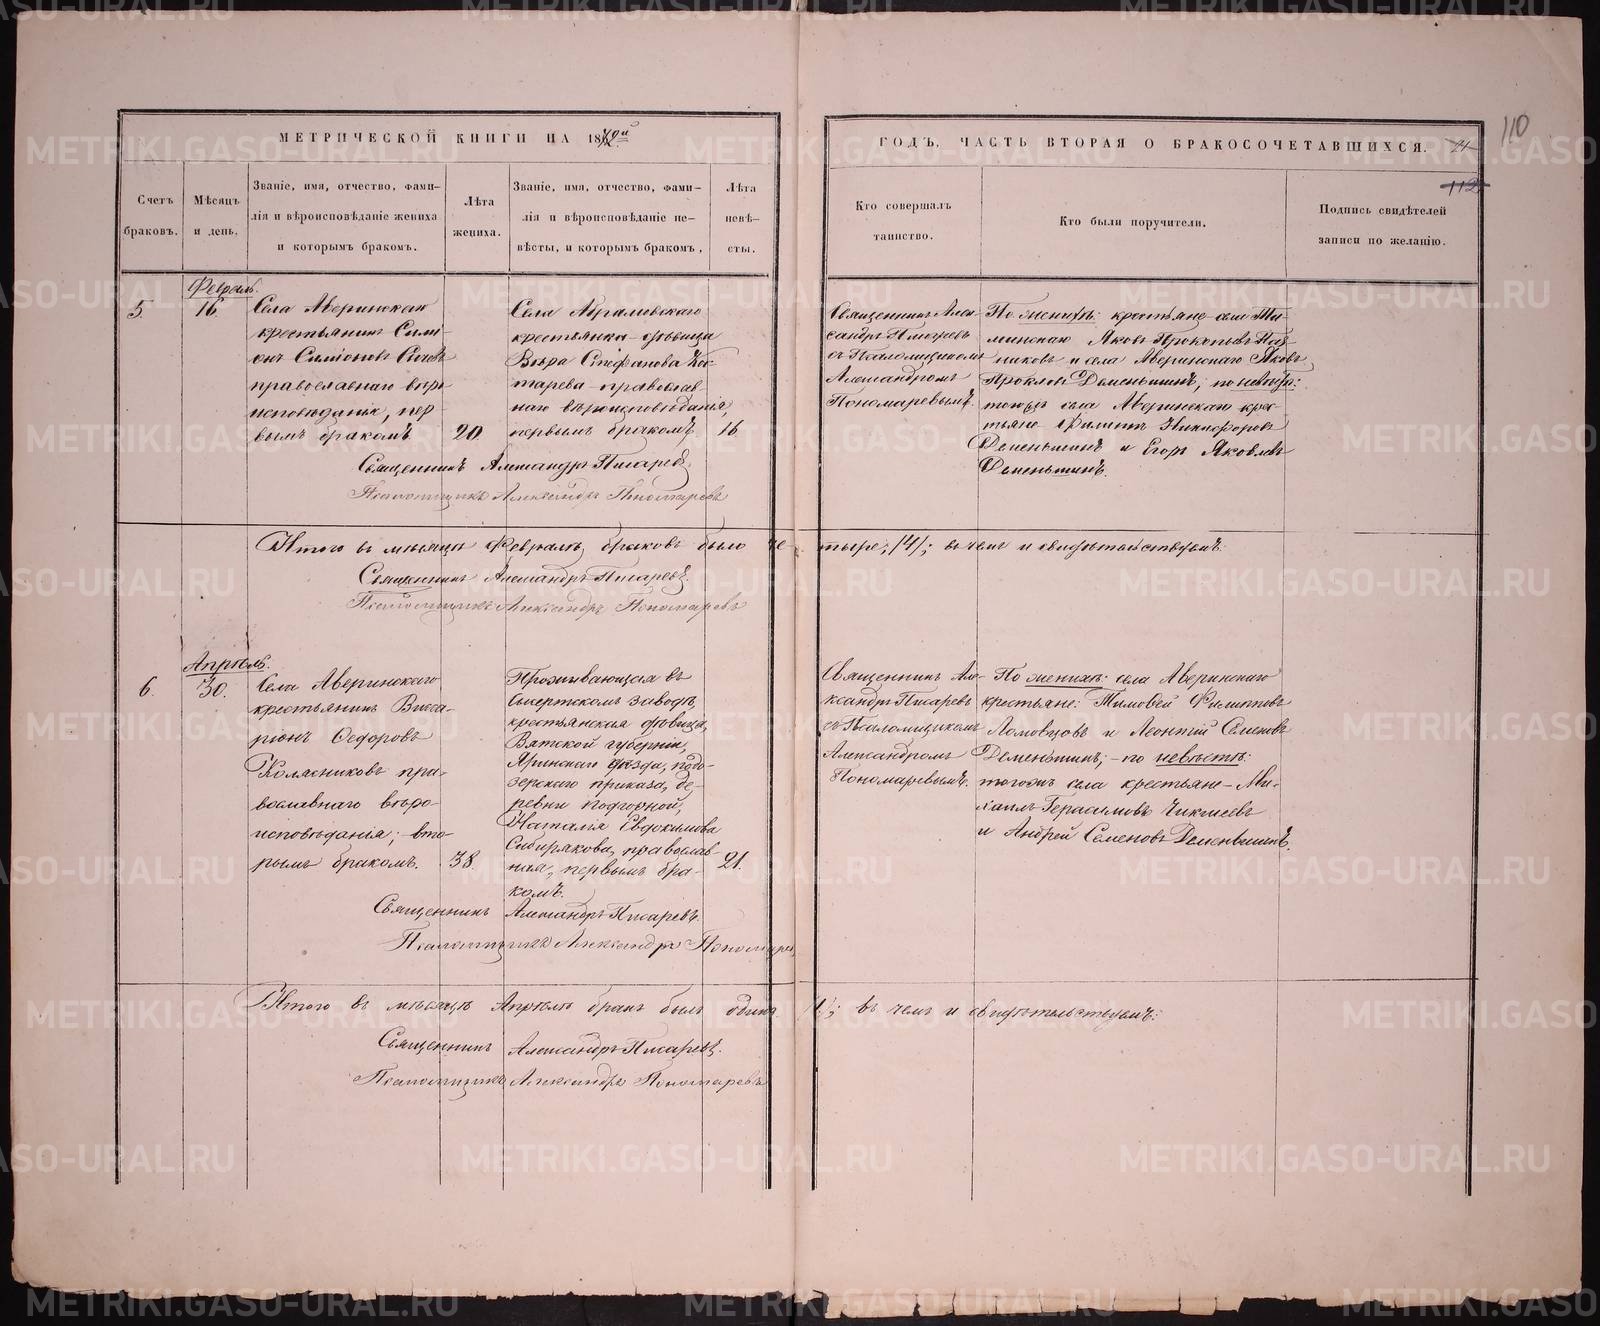 110
МЕТРИЧЕСКОЙ КНИГИ НА 18
ГОДЪ, ЧАСТЬ ВТОРАЯ О БРАКОСОЧЕТАВШИХСЯ.
112
Счетъ браковъ.
Мѣсяцъ и день.
Званіе, имя, отчество, фами-
лія и вѣроисповѣданіе жениха
и которымъ бракомъ.
Лѣта жениха.
Званіе, имя, отчество, фами-
лія и вѣроисповѣданіе не-
вѣсты, и которымъ бракомъ,
Лѣта невѣ-
сты.
Кто совершалъ
таинство.
Кто были поручители.
Подпись свидѣтелей
записи по желанію.
5.
Февраль.
16.
Села Аверинскаго
крестьянинъ Сими-
онъ Симіоновъ
православнаго вѣро
исповѣданія, пер-
вымъ бракомъ
20.
Села Абрамовскаго
крестьянка-дѣвица
Вѣра Стефанова Ко-
тарева-православ-
наго вѣроисповѣданія,
первымъ бракомъ
16.
Священникъ Алек-
сандръ Писаревъ
съ Псаломщикомъ
Александромъ
Пономаревымъ.
По женихѣ: крестьяне села
Яковъ Прокопьевъ
и села Аверинскаго Яковъ
Деменьшинъ; по невѣстѣ:
тогожъ села Аверинскаго крес-
тьяне Филиппъ Никифоровъ
Деменьшинъ и Егоръ Яковлевъ
Деменьшинъ.
Священникъ Александръ Писаревъ.
Псаломщикъ Александръ Пономаревъ
Итого въ мѣсяцѣ Февралѣ браковъ было че-
тыре; /4/; въ чемъ и свидѣтельствуемъ:
Священникъ Александръ Писаревъ.
Псаломщикъ Александръ Пономаревъ
6.
Апрѣль.
30.
Села Аверинскаго
крестьянинъ Висса-
ріонъ Ѳедоровъ
Колясниковъ пра-
вославнаго вѣро-
исповѣданія;-вто-
рымъ бракомъ.
38.
Проживающая въ
Сысертскомъ заводѣ,
крестьянская дѣвица,
Вятской губерніи,
Яринскаго уѣзда,
приказа, де-
ревни Подгорной,
Наталія Евдокимова
Сибирякова, православ-
ная, первымъ бра-
комъ.
21.
Священникъ Але-
ксандръ Писаревъ
съ Псаломщикомъ
Александромъ
Пономаревымъ.
По женихѣ: села Аверинскаго
крестьяне: Тимоѳей Филипповъ
Ломовцовъ и Леонтій Семеновъ
Деменьшинъ;-по невѣстѣ:
тогожъ села крестьяне-Ми-
хаилъ Герасимовъ Чикишевъ
и Андрей Семеновъ Деменьшинъ.
Священникъ Александръ Писаревъ.
Псаломщикъ Александръ Пономаревъ
Итого въ мѣсяцѣ Апрѣлѣ бракъ былъ одинъ
/1/; въ чемъ и свидѣтельствуемъ:
Священникъ Александръ Писаревъ.
Псаломщикъ Александръ Пономаревъ
METRIKI.GASO-URAL.RU